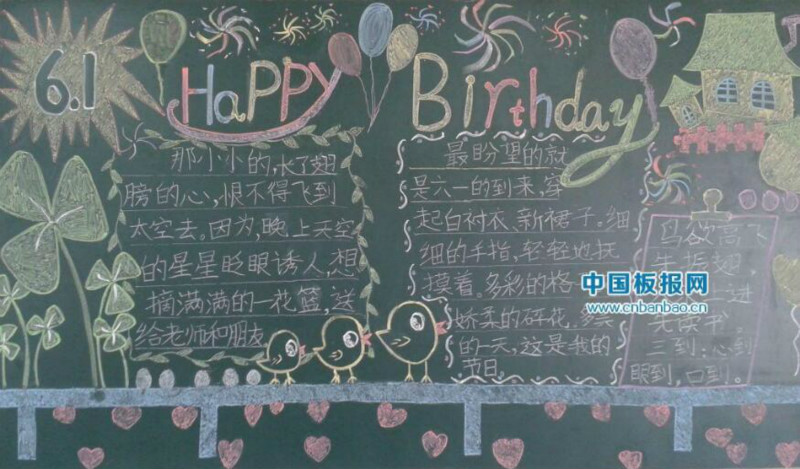 6.1
Happy Birthday
那小小的,长了翅
膀的心,恨不得飞到
太空去。因为,晚上天空
的星星眨眼诱人,想
摘满满的一花篮,送
给老师和朋友
最盼望的就
是六一的到来,穿
起白衬衣、新裙子。细
细的手指,轻轻地抚
摸着。多彩的格
娇柔的碎花。
的一天,这是我的
节日。
鸟欲高飞
先振翅,
进
先读书
三到:心到
眼到,口到。
中国板报网
www.cnbanbao.cn